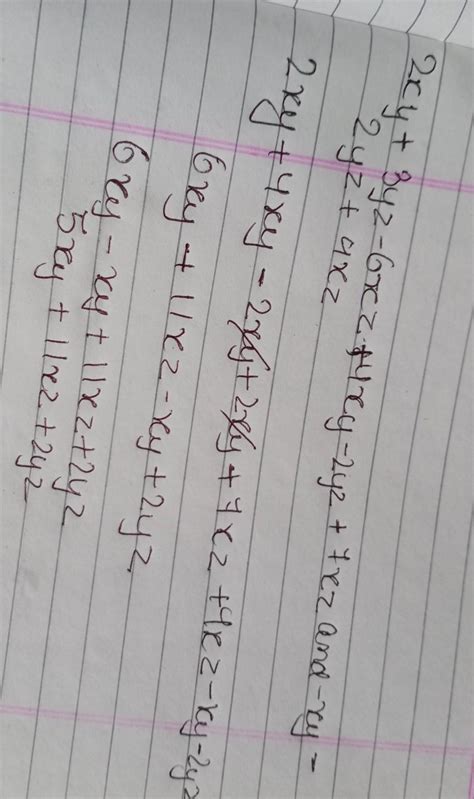 2xy + 3yz - 6xz + 4xy - 2yz + 7xz and - xy -
2yz + 4xz
2xy + 4xy - 2xy + 2xy + 7xz + 4xz - xy - 2yz
6xy + 11xz - xy + 2yz
6xy - xy + 11xz + 2yz
5xy + 11xz + 2yz